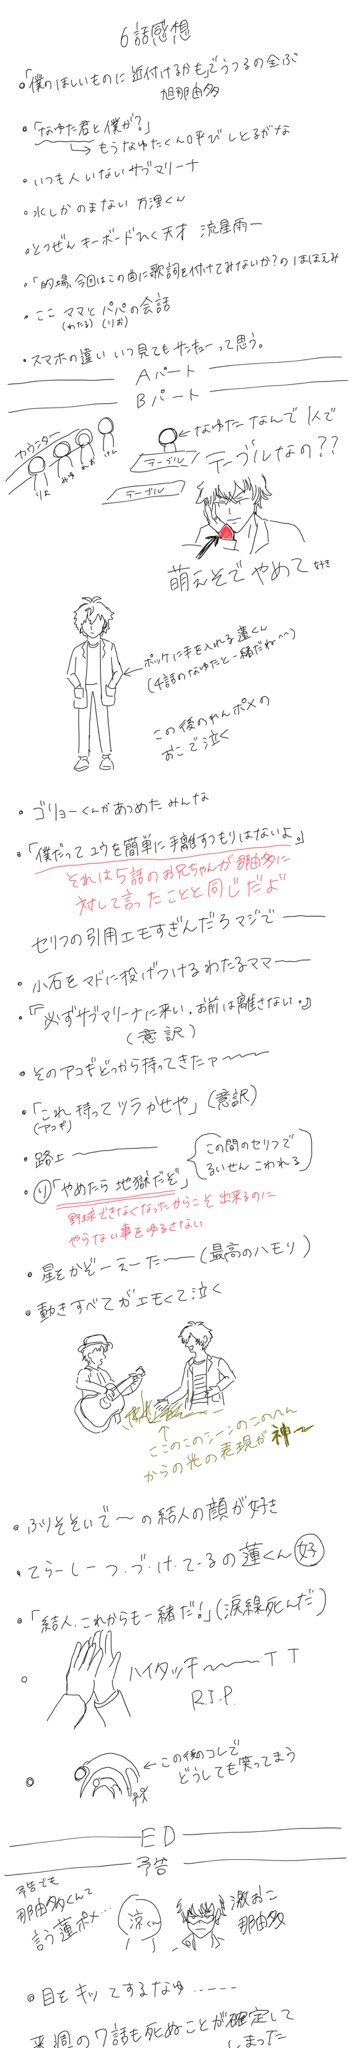 6話感想
「僕のほしいものに近付けるかも」でうつるの全ぶ
旭那由多
「なゆた君と僕が?」
もうなゆたくん呼びしとるがな
いつも人いないサブマリーナ
水しかのまない万浬くん
とつぜんキーボードひく天才 流星雨ー
「的場、今回はこの曲に歌詞を付けてみないか?」のほほえみ
ここ ママとパパの会話
(わたる)(りお)
スマホの違い いつ見てもサンキューって思う。
Aパート
Bパート
カウンター
テーブル
テーブル
なゆた なんで1人で
テーブルなの??
萌えそでやめて 好き
ポッケに手を入れる蓮くん
(4話のなゆたと一緒だね^^)
この後のれんポメの
おこで泣く
ゴリョーくんがあつめたみんな
「僕だってユウを簡単に手離すつもりはないよ。」
それは5話のお兄ちゃんが那由多に
対して言ったことと同じだよ
セリフの引用エモすぎんだろマジでー
小石をマドに投げつけるわたるママー
「必ずサブマリーナに来い。お前は離さない。」
(意訳)
そのアコギどっから持ってきたァー
「これ持ってツラかせや」(意訳)
(アコギ)
路上ー
(この間のセリフで
るいせんこわれる)
り「やめたら地獄だぞ」
野球できなくなったからこそ出来るのに
やらない事をゆるさない
星をかぞーえーたー(最高のハモリ)
動きすべてがエモくて泣く
ここのこのシーンのこのへん
からの光の表現が神ー
ふりそそいで〜の結人の顔が好き
てらーしーつ.づ.け.てーるの蓮くん 好
「結人、これからも一緒だ!」(涙線死んだ)
ハイタッチーTT
R.I.P.
この後のコレで
どうしても笑ってまう
ED
予告
予告でも
那由多くんて
言う蓮ポメ…
涼くん
激おこ
那由多
目をキッてするなゆ……
来週の7話も死ぬことが確定して
しまった